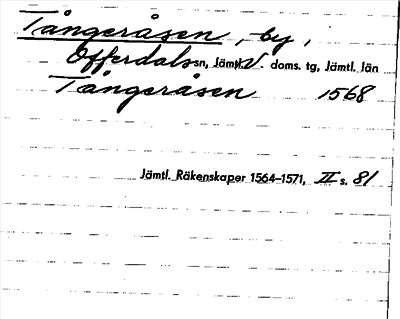 Tångeråsen, by,
Offerdals sn, Jämtl. V. doms. tg, Jämtl. län
Tångeråsen 1568
Jämtl. Räkenskaper 1564-1571, II s. 81